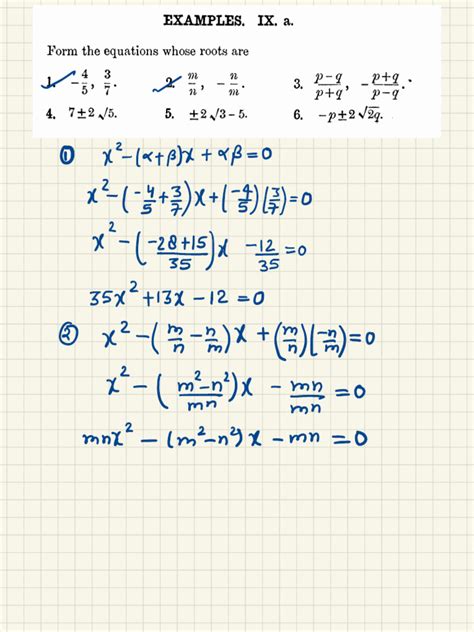 EXAMPLES. IX. a.
Form the equations whose roots are
1. -4/5, 3/7. 2. m/n, -n/m. 3. (p-q)/(p+q), -(p+q)/(p-q).
4. 7±2√5. 5. ±2√3-5. 6. -p±2√2q.
① x²-(α+β)x+αβ=0
x²-(-4/5+3/7)x+(-4/5)(3/7)=0
x²-(-28+15/35)x -12/35=0
35x²+13x-12=0
② x²-(m/n-n/m)x+(m/n)(-n/m)=0
x²-(m²-n²/mn)x-mn/mn=0
mnx²-(m²-n²)x-mn=0